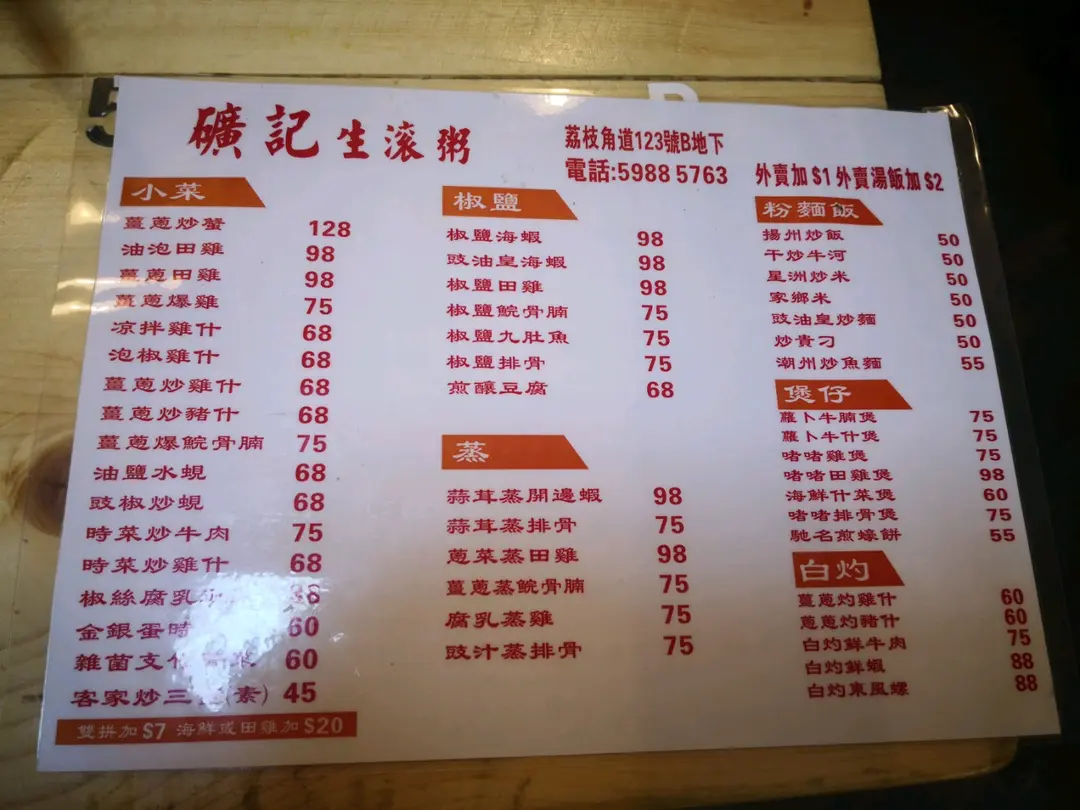 礦記生滚粥
荔枝角道123號B地下
電話:5988 5763
外賣加 $1 外賣湯飯加 $2
小菜
薑蔥炒蟹 128
油泡田雞 98
薑蔥田雞 98
薑蔥爆雞 75
凉拌雞什 68
泡椒雞什 68
薑蔥炒雞什 68
薑蔥炒豬什 68
薑蔥爆鯇骨腩 75
油鹽水蜆 68
豉椒炒蜆 68
時菜炒牛肉 75
時菜炒雞什 68
椒絲腐乳
金銀蛋時 60
雜菌支竹 60
客家炒三 (素) 45
雙拼加 $7 海鮮或田雞加 $20
椒鹽
椒鹽海蝦 98
豉油皇海蝦 98
椒鹽田雞 98
椒鹽鯇骨腩 75
椒鹽九肚魚 75
椒鹽排骨 75
煎釀豆腐 68
蒸
蒜茸蒸開邊蝦 98
蒜茸蒸排骨 75
蔥菜蒸田雞 98
薑蔥蒸鯇骨腩 75
腐乳蒸雞 75
豉汁蒸排骨 75
粉麵飯
揚州炒飯 50
干炒牛河 50
星洲炒米 50
家鄉米 50
豉油皇炒麵 50
炒貴刁 50
潮州炒魚麵 55
煲仔
蘿卜牛腩煲 75
蘿卜牛什煲 75
啫啫雞煲 75
啫啫田雞煲 98
海鮮什菜煲 60
啫啫排骨煲 75
馳名煎蠔餅 55
白灼
薑蔥灼雞什 60
薑蔥灼豬什 60
白灼鮮牛肉 75
白灼鮮蝦 88
白灼東風螺 88